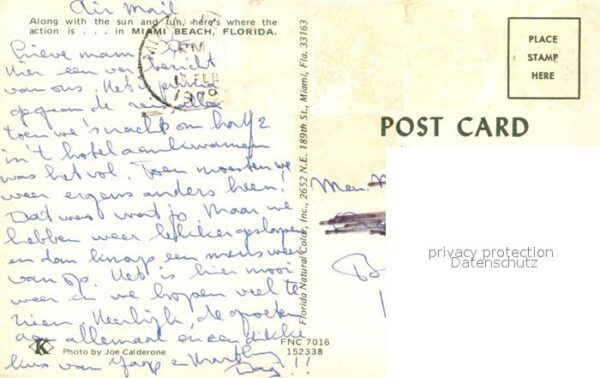 Air Mail
Along with the sun and fun, here's where the
action is . . . in MIAMI BEACH, FLORIDA.
Lieve mam
Hier een ver bericht
van ons. Het
gegaan de reis, alleen
toen we 's nachts om half 2
in 't hotel aankwamen
was het vol. Toen moesten we
weer ergens anders heen.
Dat was wat, jo. Maar we
hebben weer lekker geslapen
en dan knap een mens weer
van op. Het is hier mooi
weer en we hopen veel te
zien. Heerlijk, de groeten
aan allemaal en een dikke
kus van Jaap en
Dag!!
K
Photo by Joe Calderone
FNC 7016
152338
PM
FEB
Florida Natural Color, Inc., 2652 N.E. 189th St., Miami, Fla. 33163
PLACE
STAMP
HERE
POST CARD
privacy protection
Datenschutz